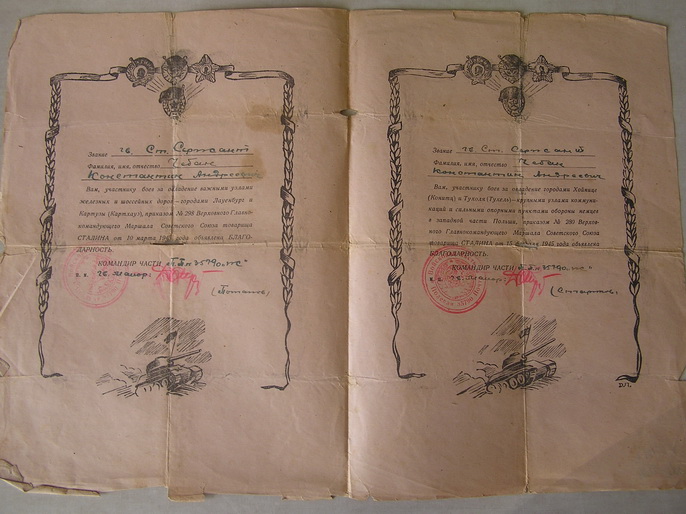 Звание гв Ст. Сержант
Фамилия, имя, отчество Чебан
Константин Андреевич
Вам, участнику боев за овладение важными узлами
железных и шоссейных дорог—городами Лауенбург и
Картузы (Картхауз), приказом № 298 Верховного Главно-
командующего Маршала Советского Союза товарища
СТАЛИНА от 10 марта 1945 года объявлена БЛАГО-
ДАРНОСТЬ.
КОМАНДИР ЧАСТИ
гв. майор:
Звание гв Ст. Сержант
Фамилия, имя, отчество Чебан
Константин Андреевич
Вам, участнику боев за овладение городами Хойнице
(Конитц) и Тухоля (Тухель)—крупными узлами коммуни-
каций и сильными опорными пунктами обороны немцев
в западной части Польши, приказом № 280 Верхов-
ного Главнокомандующего Маршала Советского Союза
товарища СТАЛИНА от 15 1945 объявлена
БЛАГОДАРНОСТЬ.
КОМАНДИР ЧАСТИ
гв. майор: